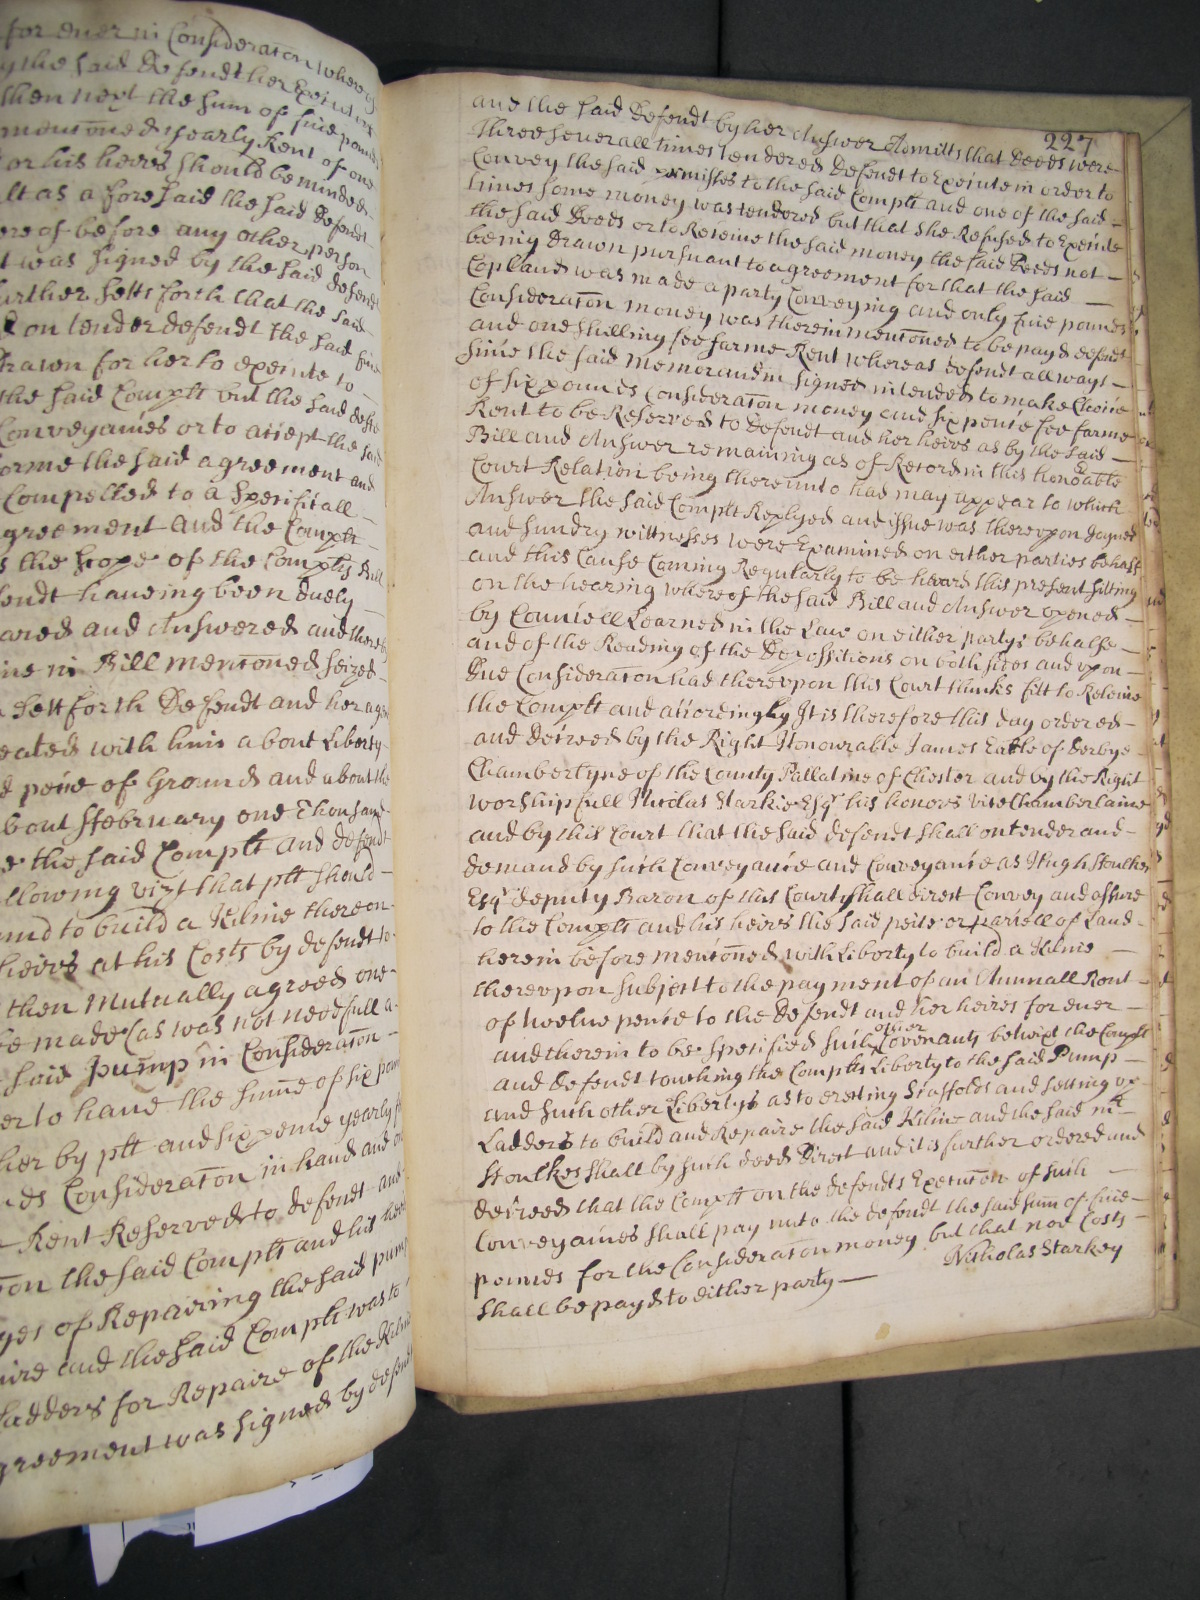 for ever in Consideraton where
y the said Defendt her
then next the sum of five pounds
mentoned yearly Rent of one
or his heires should be minded
lt as a foresaid the said Defendt
ere of before any other person
t was signed by the said Defendt
urther setts forth that the said
on tender defendt the said five
rawn for her to execute to
the said Complt but the said defendt
Conveyances or to accept the said
orme the said agreement and
Compelled to a Specificall
greement and the Complt
s the scope of the Complts Bill
endt haveing been duely
ared and Answered and there
ine in Bill mentoned seized
Sett forth Defendt and her
eated with him about Liberty
d peice of Ground and about the
bout ffebruary one Thousand
e the said Complt and defendt
llowing vizt that plt should
und to build a Kilne thereon
heires at his Costs by defendt to
then Mutually agreed one
e made (as was not needfull a
said pump in Consideraton
er to have the sume of six pounds
her by plt and six pence yearly
ds Consideraton in hand and
Rent Reserved to defendt and
on the said Complt and his heires
ges of Repairing the said pump
ire and the said Complt was to
Ladders for Repaire of the Kilne
greement was signed by defendt
227
and the said Defendt by her Answer Admitts that Deeds were
Three severall times tendered Defendt to Execute in order to
Convey the said premisses to the said Complt and one of the said
times some money was tendered but that she Refused to Execute
the said Deeds or to Receive the said money the said Deeds not
being Drawn pursuant to agreement for that the said
Copland was made a party Conveying and only five pounds
Consideraton money was therein mentoned to be payd defendt
and one shilling fee farme Rent whereas defendt allways
since the said Memorandm signed intended to make Choice
of six pounds Consideraton money and six pence fee farme
Rent to be Reserved to Defendt and her heires as by the said
Bill and Answer remaining as of Record in this honoable
Court Relation being thereunto had may appear to which
Answer the said Complt Replyed and issue was thereupon Joyned
and sundry wittnesses were Examined on either parties behalf
and this Cause Coming Regularly to be heard this present sitting
on the hearing whereof the said Bill and Answer opened
by Councell Learned in the Law on either partys behalfe
and of the Reading of the Depossitions on both sites and upon
Due Consideraton had thereupon this Court thinks fitt to Releive
the Complt and accordingly It is therefore this day ordered
and decreed by the Right Honourable James Earle of Derbye
Chamberlyne of the County Pallatine of Chester and by the Right
worshipfull Nicolas Starkie Esqr his honors Vice Chamberlaine
and by this Court that the said defendt shall on tender and
demand by such Conveyance and Conveyance as Hugh Stoulkes
Esqr deputy Baron of this Court shall direct Convey and assure
to the Complt and his heires the said peice or parcell of Land
herein before mentoned with Liberty to build a Kilne
thereupon subject to the payment of an Annuall Rent
of twelve pence to the Defendt and her heires for ever
and therein to be specified such other Covenants betwixt the Complt
and defendt touching the Complts Liberty to the said Pump
and such other Libertys as to erecting Scaffolds and setting up
Ladders to build and Repaire the said Kilne and the said Mr
Stoulkes shall by such deed Direct and it is further ordered and
decreed that the Complt on the defendts Executon of such
Conveyances shall pay unto the defendt the said sum of five
pounds for the Consideraton money but that noe Costs
shall be payd to either party
Nicholas Starkey